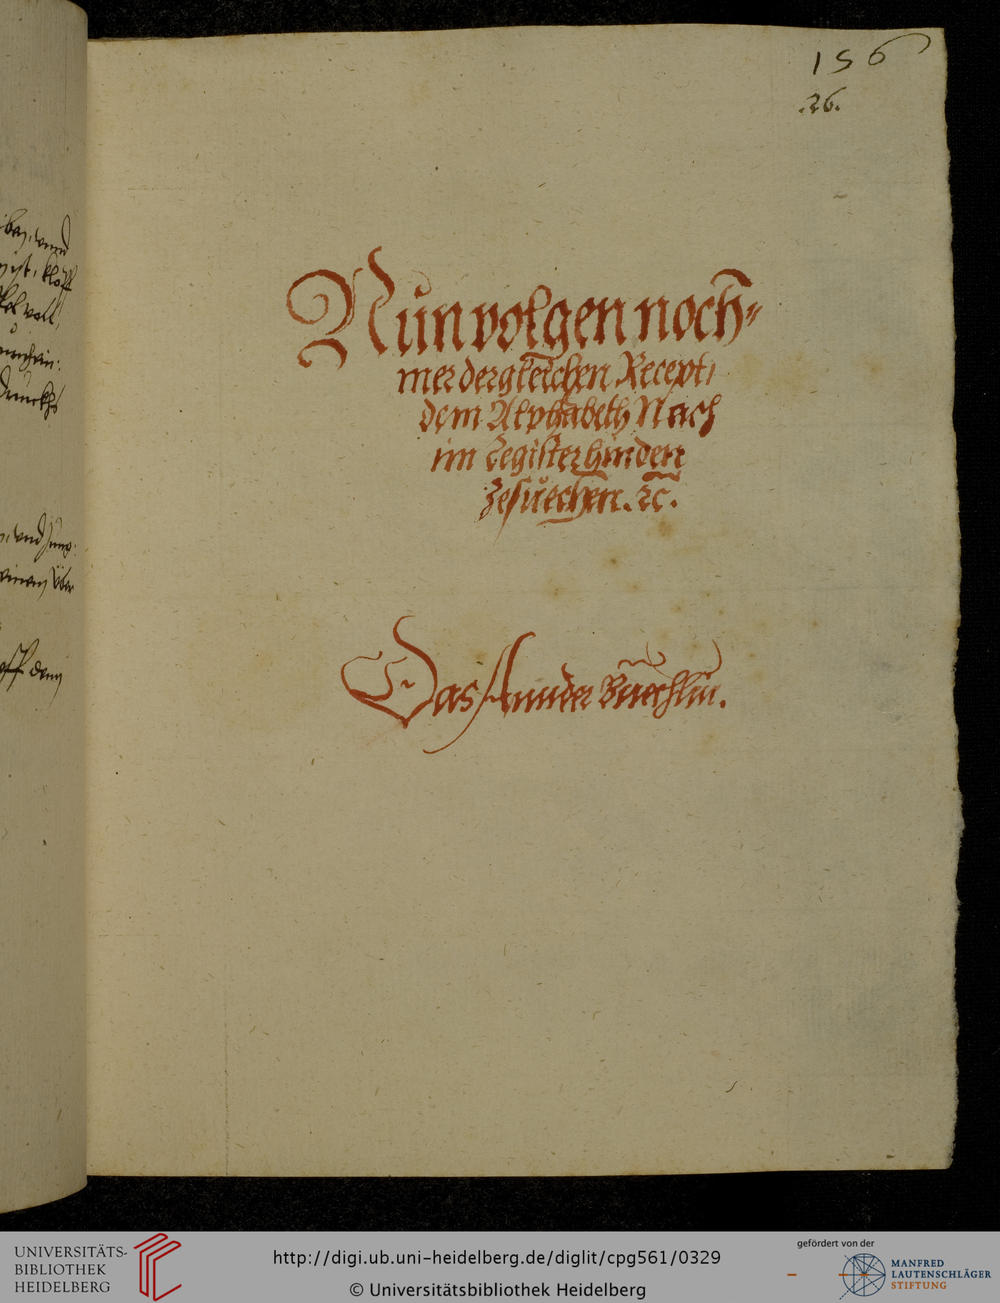 156
.26.
Nun volgen noch-
mer dergleichen Recept,
dem Alphabeth Nach
im Register hinden
zesuechen. ꝛc.
Das Annder Buechlin.
UNIVERSITÄTS-
BIBLIOTHEK
HEIDELBERG
http://digi.ub.uni-heidelberg.de/diglit/cpg561/0329
© Universitätsbibliothek Heidelberg
gefördert von der
MANFRED
LAUTENSCHLÄGER
STIFTUNG